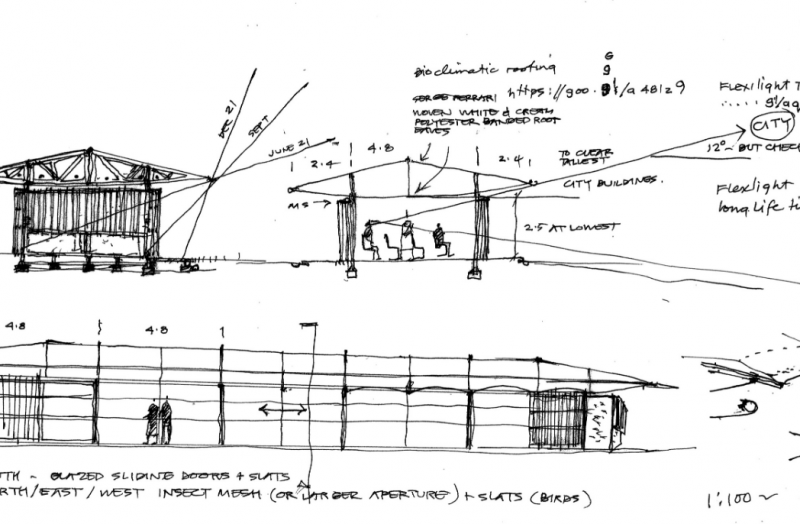 Bioclimatic roofing
G
g
SERGE FERRARI
https://goo.gl/a48129
WOVEN WHITE & CREAM
POLYESTER BANDED ROOF
EAVES
FLEX/light T
CITY
12° BUT CHECK
Flexlight
long Life ti
DEC 21
SEPT
JUNE 21
2.4
4.8
2.4
TO CLEAR
TALLEST
CITY BUILDINGS.
MS
2.5 AT LOWEST
4.8
4.8
UTH - GLAZED SLIDING DOORS + SLATS
RTH/EAST/WEST INSECT MESH (OR LARGER APERTURE) + SLATS (BIRDS)
1:100